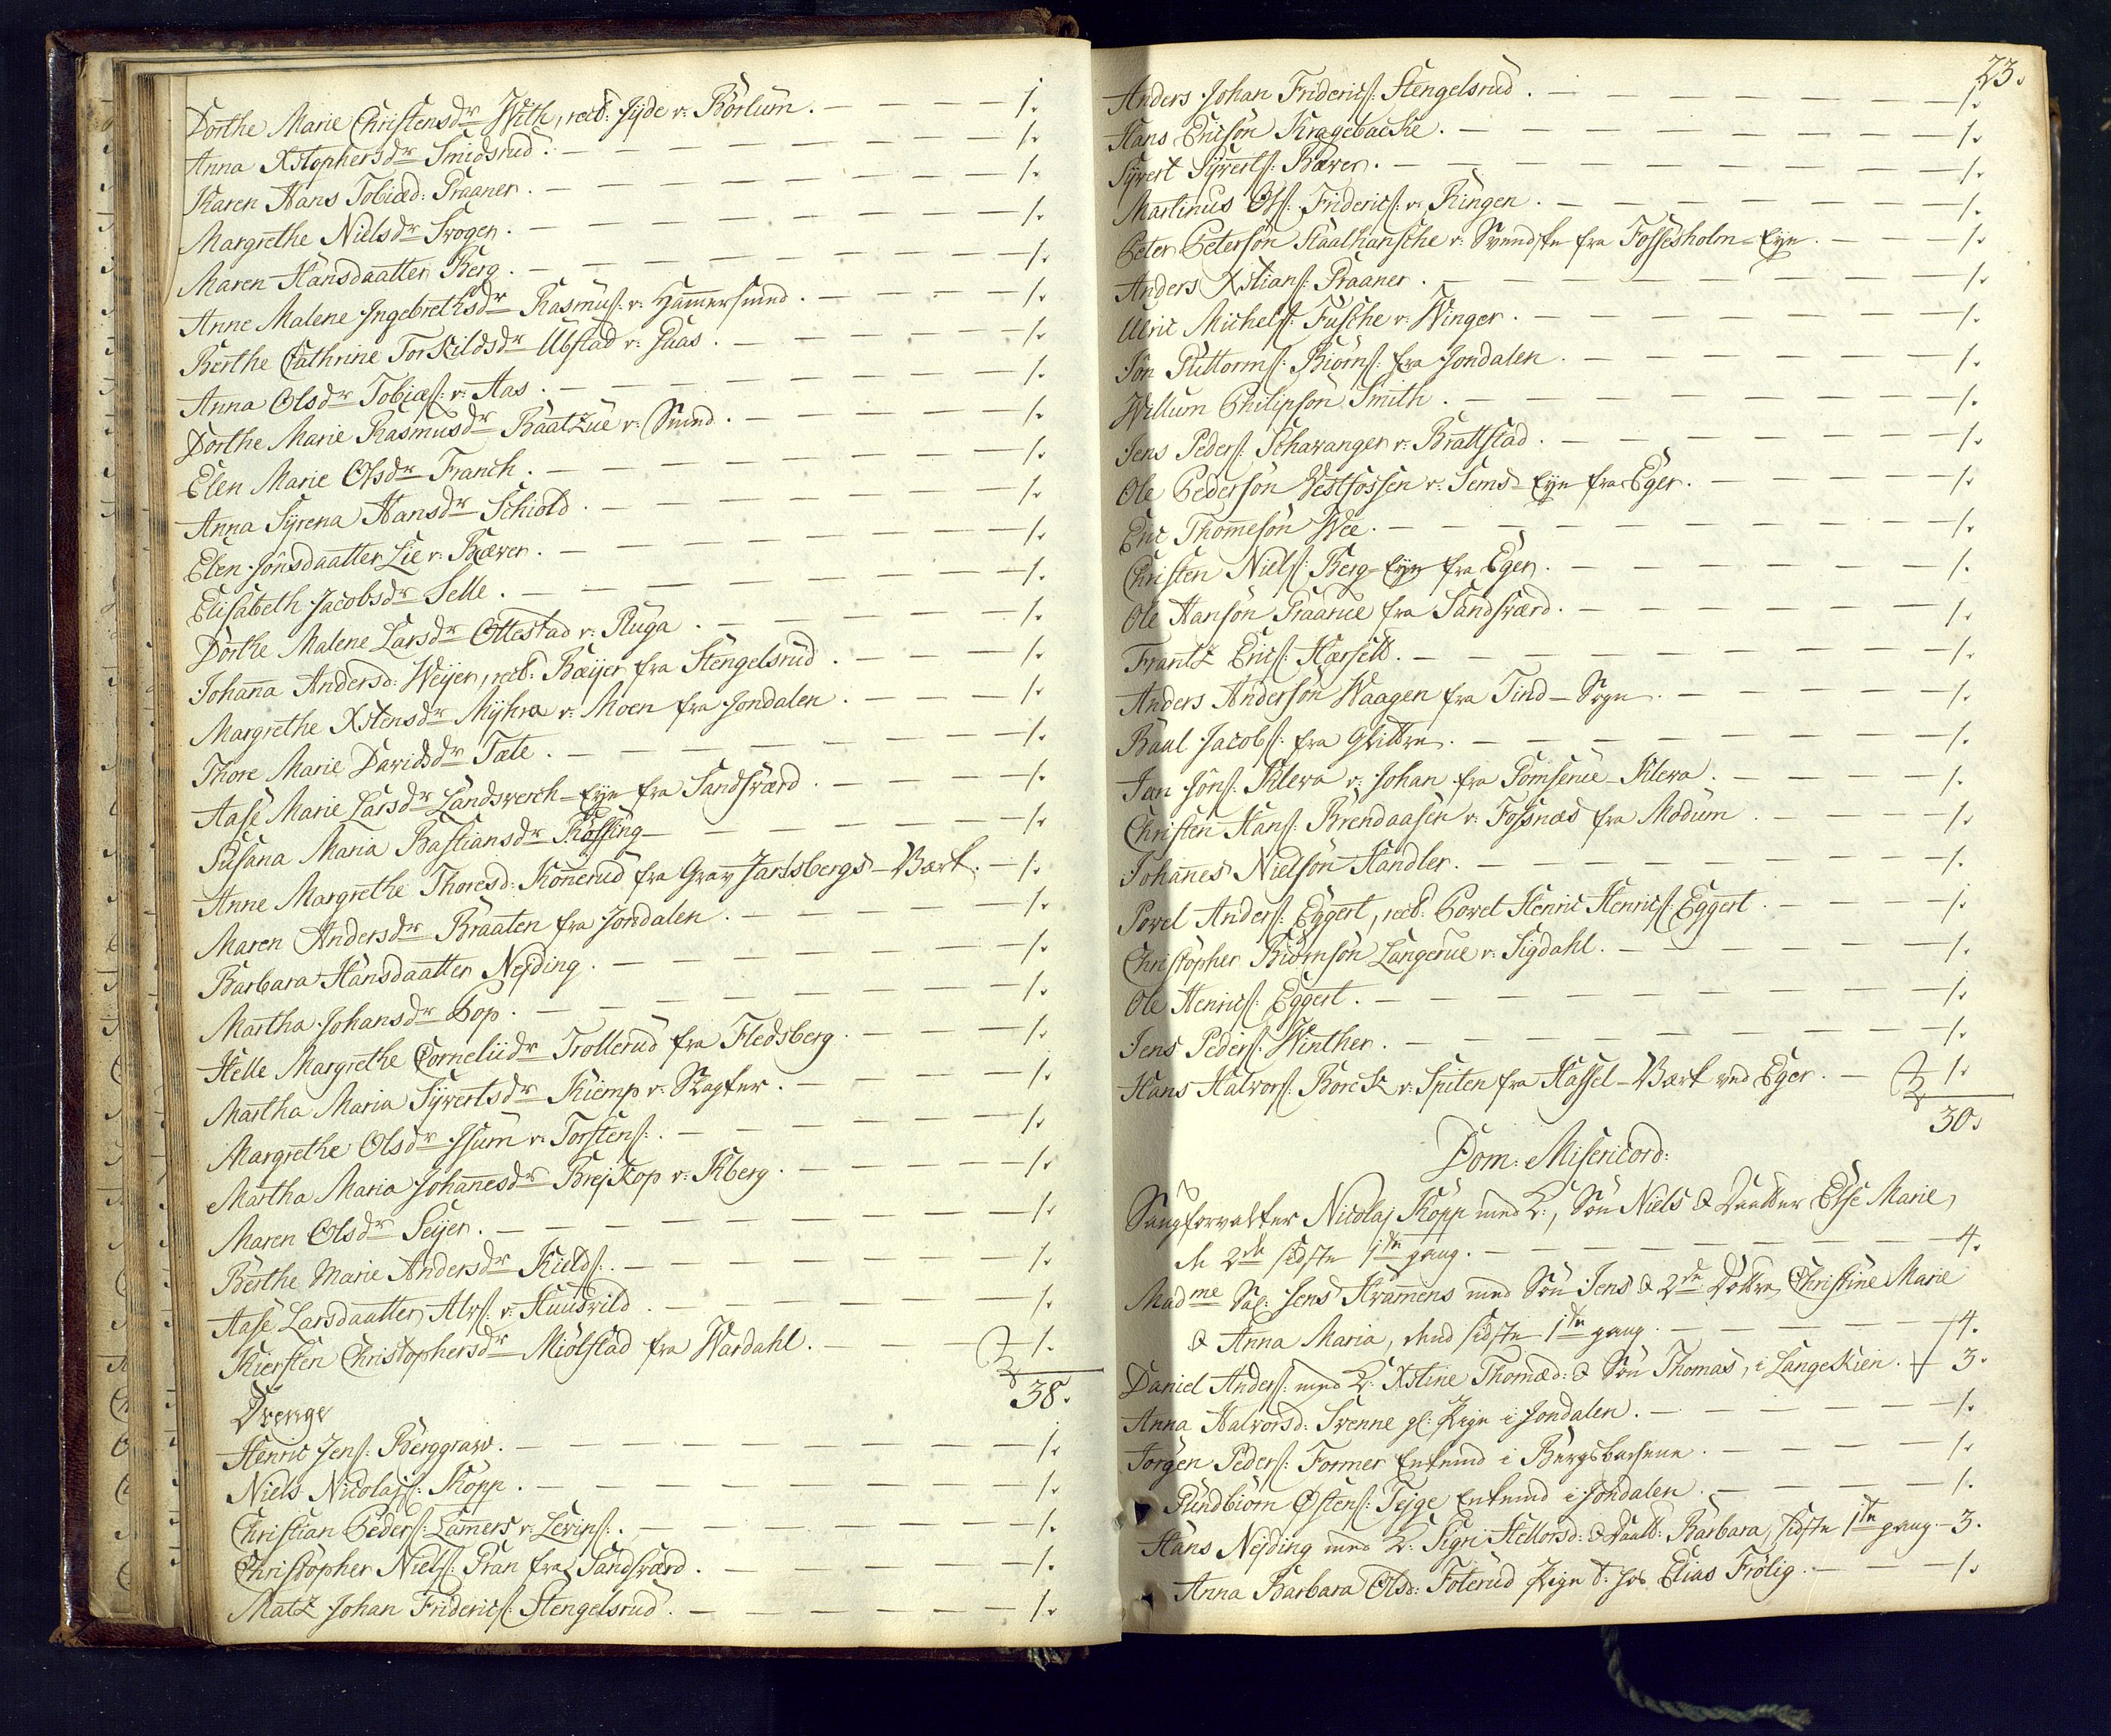 Dorthe Marie Christensdr With, rect: Jÿde v: Börlum. 1.
Anna Xstophersdr Smidsrud. 1.
Karen Hans Tobiæd: Praaner. 1.
Margrethe Nielsdr Srogen. 1.
Maren Hansdaatter Berg. 1.
Anne Malene Ingebrethsdr Rasmus: v: Hammersmed. 1.
Berthe Cathrine Torkildsdr Ubstad v: Puas. 1.
Anna Olsdr Tobiæs: v: Aas. 1.
Dorthe Marie Rasmusdr Baatzüe v: Smed. 1.
Elen Marie Olsdr Franch. 1.
Anna Syrena Hansdr Schiold. 1.
Elen Jonsdaatter Lie v: Bæver. 1.
Elisabeth Jacobsdr Selle. 1.
Dorthe Malene Larsdr Ottestad v: Ruga. 1.
Johanna Andersd: Weyer, rect: Bæyer fra Stengelsrud. 1.
Margrethe Xstensdr Mÿhra v: Moen fra Jondalen. 1.
Thore Marie Davidsdr Tate. 1.
Aase Marie Larsdr Landsverch-Eye fra Sandsværd. 1.
Susana Maria Bastiansdr Røssing 1.
Anne Margrethe Thoresd: Konnerud fra Grav Jarlsbergs-Værk. 1.
Maren Andersdr Braaten fra Jondalen. 1.
Barbara Hansdaatter Nejding. 1.
Martha Johansdr Bop. 1.
Helle Margrethe Corneliidr Trollerud fra Flesberg. 1.
Martha Maria Syvertsdr Kiemp v: Slagter. 1.
Margrethe Olsdr Isum v: Torstens: 1.
Martha Maria Johannesdr Brejkop v: Kberg. 1.
Maren Olsdr Seyer. 1.
Berthe Marie Andersdr Kields: 1.
Aase Larsdaatter Alvs: v: Huusvild. 1.
Kiersten Christophersdr Miölstad fra Wardahl. 1.
38.
Drenge
Henric Jens: Berggraw. 1.
Niels Nicolajs: Kopp. 1.
Christian Peders: Lamers v: Levins: 1.
Christopher Niels: Pran fra Sandsværd. 1.
Matz Johan Frideric: Stengelsrud. 1.
23.
Anders Johan Friderics: Stengelsrud. 1.
Hans Ericsön Kragebacke. 1.
Syvert Syverts: Bæver. 1.
Martinus Ols: Friderics: v: Ringen. 1.
Peter Peterson Staalhansche v: Svendske fra Fossesholm-Eye. 1.
Anders Xstians: Praaner. 1.
Ulric Michels: Fusche v: Winger. 1.
Jon Guttorms: Biorns: fra Jondalen. 1.
Willum Philipsön Smith. 1.
Jens Peders: Schavanger v: Brattstad. 1.
Ole Pedersön Vestfossen v: Sems-Eye fra Eger. 1.
Eric Thomesön Wee. 1.
Christen Niels: Berg-Eye fra Eger. 1.
Ole Hansön Praarue fra Sandsværd. 1.
Frantz Erics: Harsett. 1.
Anders Andersön Waagen fra Tind-Sogn. 1.
Paul Jacobs: fra Glittre. 1.
Jan Jöns: Kleva v: Johan fra Pomserue-Kleva. 1.
Christen Hans: Brendaasen v: Fossnæs fra Modum. 1.
Johannes Nielsön Handler. 1.
Povel Anders: Eggert, rect: Povel Henric Henrics: Eggert. 1.
Christopher Biörnsön Langerue v: Sigdahl. 1.
Ole Henrics: Eggert. 1.
Jens Peders: Winther. 1.
Hans Halvors: Borck v: Spiten fra Hassel-Værk ved Eger. 1.
30.
Dom: Misericord:
Saugforvalter Nicolaj Kopp med K:, Sön Niels & Daatter Else Marie,
de 2de sidste 1te gang. 4.
Madme Sal: Jens Kramers med Sön Jens & 2de Döttre Christine Marie
& Anna Maria, den sidste 1te gang. 4.
Daniel Anders: med K: Xstine Thomæd: & Sön Thomas, i Langeskien. 3.
Anna Halvorsd: Svenne gl: Pige i Jondalen. 1.
Jörgen Peders: Former Enkemd i Bergsbachene. 1.
Pundbiörn Østens: Tejge Enkemd i Jondalen. 1.
Hans Nejding med K: Sigri Hellorsd: & Daatt: Barbara, sidste 1te gang. 3.
Anna Barbara Olsd: Foterud Pige t: hos Elias Frölig. 1.